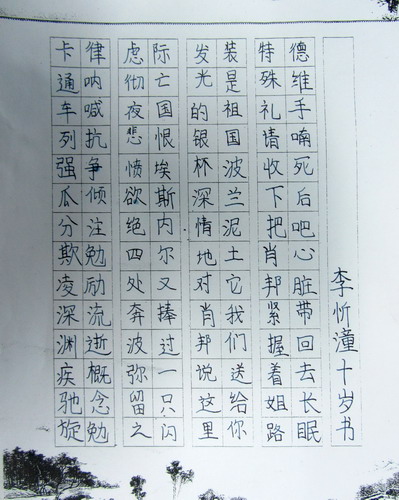 德维手喃死后吧心脏带回去长眠
特殊礼请收下把肖邦紧握着姐路
装是祖国波兰泥土它我们送给你
发光的银杯深情地对肖邦说这里
际亡国恨埃斯内尔又捧过一只闪
虑彻夜悲愤欲绝四处奔波弥留之
律呐喊抗争倾注勉励流逝概念勉
卡通车列强瓜分欺凌深渊疾驰旋
李忻潼十岁书